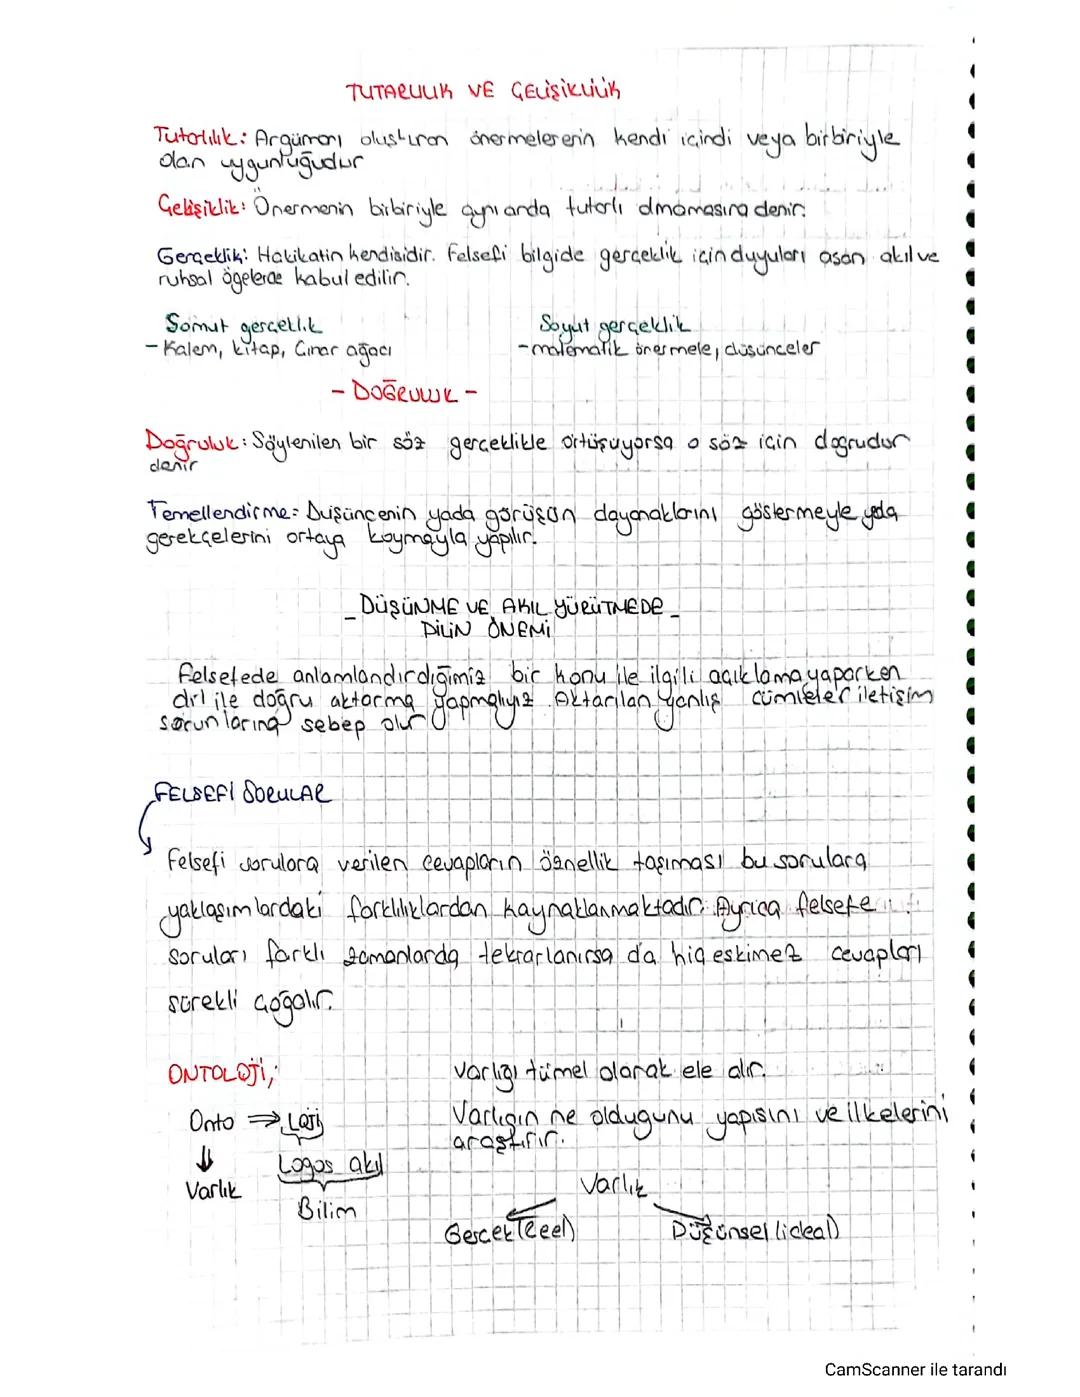 TUTARLILIK VE ÇELİŞİKLİLİK
Tutarlılık: Argümanı oluşturan önermelererin kendi içindi veya birbiriyle
olan uygunluğudur
Çelişiklik: Önermenin birbiriyle aynı anda tutarlı olmamasına denir.
Gerçeklik: Hakikatin kendisidir. Felsefi bilgide gerçeklik için duyuları aşan akıl ve
ruhsal ögelerde kabul edilir.
Somut gerçeklik
Soyut gerçeklik
- Kalem, kitap, Çınar ağacı
- matematik önermele, düşünceler
- DOĞRULUK -
Doğruluk: Söylenilen bir söz gerçeklikle örtüşüyorsa o söz için doğrudur
denir
Temellendirme: Düşüncenin yada görüşün dayanaklarını göstermeyle yada
gerekçelerini ortaya koymayla yapılır.
_ DÜŞÜNME VE AKIL YÜRÜTMEDE _
DİLİN ÖNEMİ
Felsefede anlamlandırdığımız bir konu ile ilgili açıklama yaparken
dil ile doğru aktarma yapmalıyız. Aktarılan yanlış cümleler iletişim
sorunlarına sebep olur
FELSEFİ SORULAR
Felsefi sorulara verilen cevapların öznellik taşıması bu sorulara
yaklaşımlardaki farklılıklardan kaynaklanmaktadır. Ayrıca felsefe
soruları farklı zamanlarda tekrarlanırsa da hiç eskimez cevapları
sürekli çoğalır.
ONTOLOJİ;
Varlığı tümel olarak ele alır.
Onto ⇒ Loji
Varlığın ne olduğunu yapısını ve ilkelerini
araştırır.
Logos akıl
Varlık
Varlık
Bilim
Gerçek (Reel)
Düşünsel (ideal)
CamScanner ile tarandı